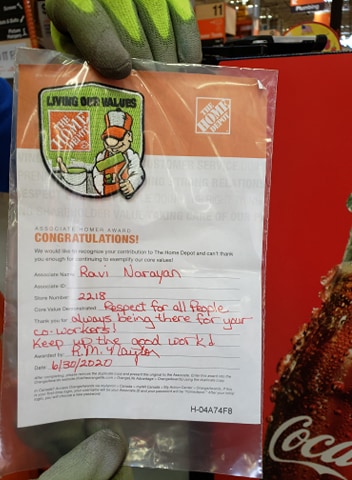 11
Plumbing
LIVING OUR VALUES
THE HOME DEPOT
THE HOME DEPOT
ASSOCIATE HOMER AWARD
CONGRATULATIONS!
We would like to recognize your contribution to The Home Depot and can't thank
you enough for continuing to exemplify our core values!
Associate Name: Ravi Narayan
Associate ID:
Store Number: 2218
Core Value Demonstrated: Respect for all People
Thank you for: always being there for your
co-workers!
Keep up the good work!
Awarded by: R.M. Taylor
Date: 6/30/2020
H-04A74F8
Coca